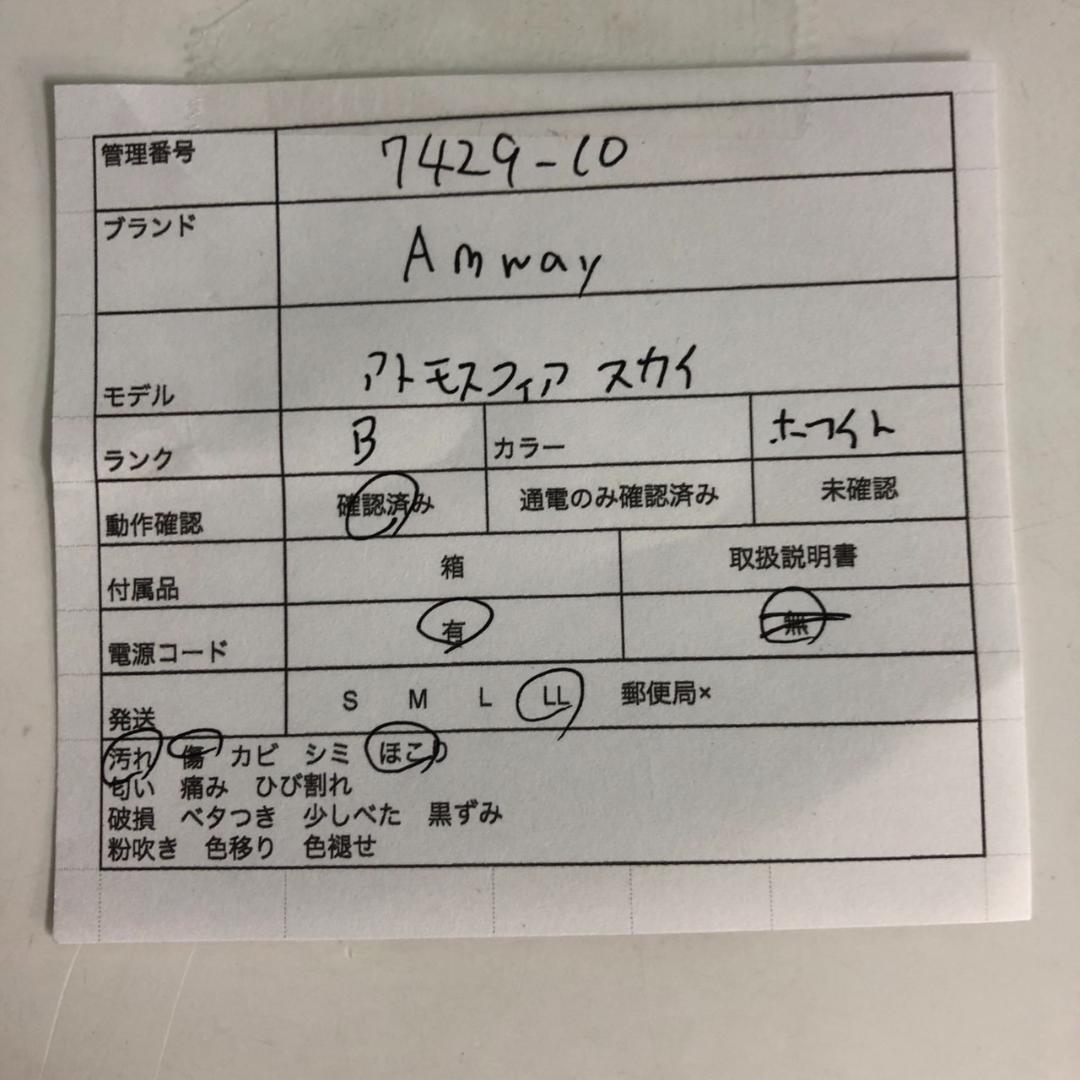 管理番号 7429-10
ブランド Amway
モデル アトモスフィア スカイ
ランク B カラー ホワイト
動作確認 確認済み 通電のみ確認済み 未確認
付属品 箱 取扱説明書
電源コード 有 無
発送 S M L LL 郵便局×
汚れ 傷 カビ シミ ほこり
匂い 痛み ひび割れ
破損 ベタつき 少しべた 黒ずみ
粉吹き 色移り 色褪せ